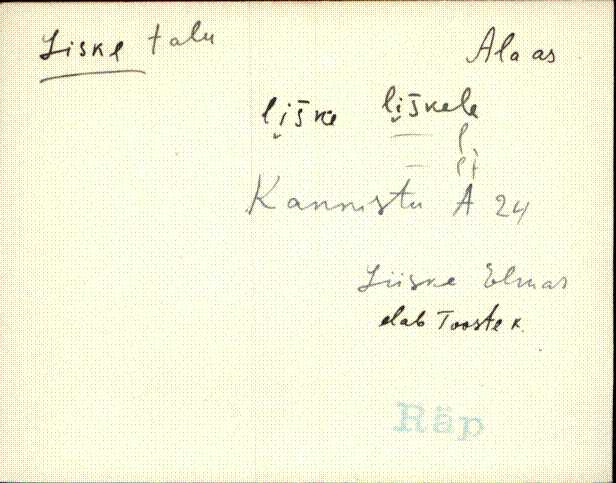 Liske talu
Alaas
li̬ške li̬škele
l
lt
Kannistu A 24
Liiske Elmar
elab Tooste k.
Räp